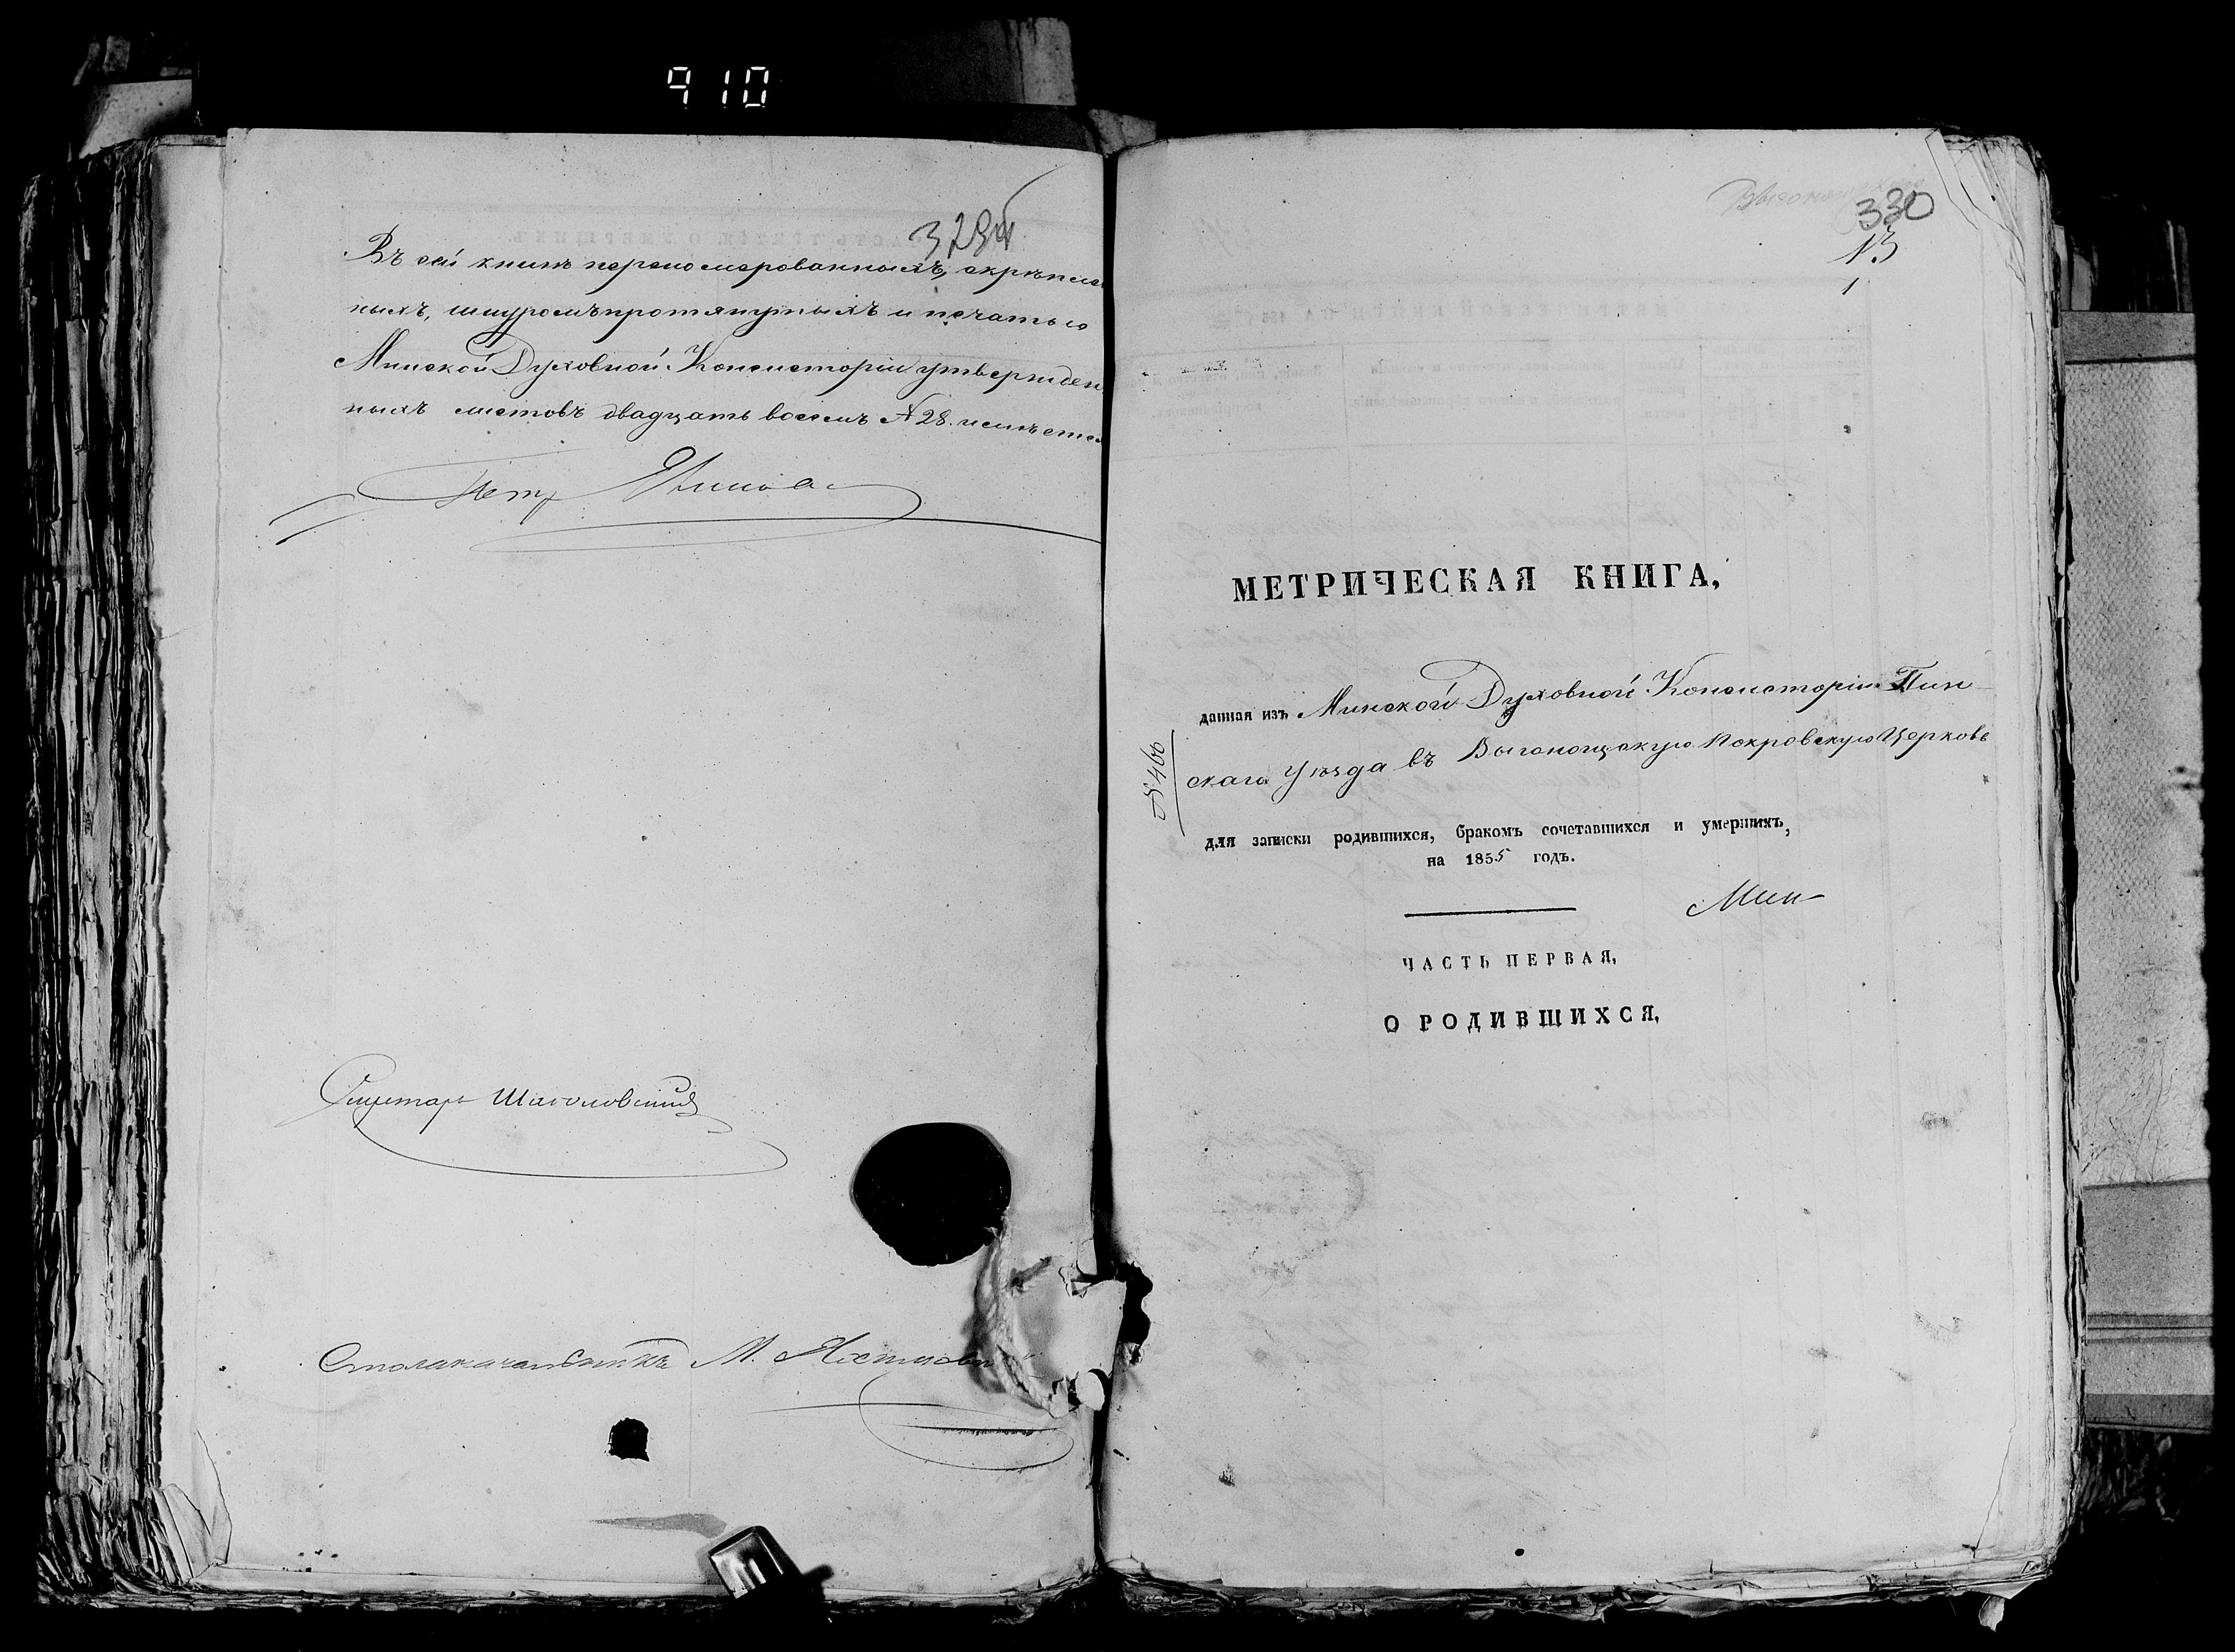 910
Въ сей книгѣ перепомерованныхъ, скрѣплен
ныхъ, шнуромъ протянутыхъ и печатью
Минской Духовной Консисторіи утвержден
ныхъ листовъ двадцать восемь № 28. имѣется
Петр
Столоначальникъ М.
330
№3
1
МЕТРИЧЕСКАЯ КНИГА,
данная изъ Минской Духовной Консисторіи Пин-
скаго Уѣзда въ Выгонощскую Покровскую Церковь
№ 466
для записки родившихся, бракомъ сочетавшихся и умершихъ,
на 1855 годъ.
Мин-
ЧАСТЬ ПЕРВАЯ,
О РОДИВШИХСЯ,